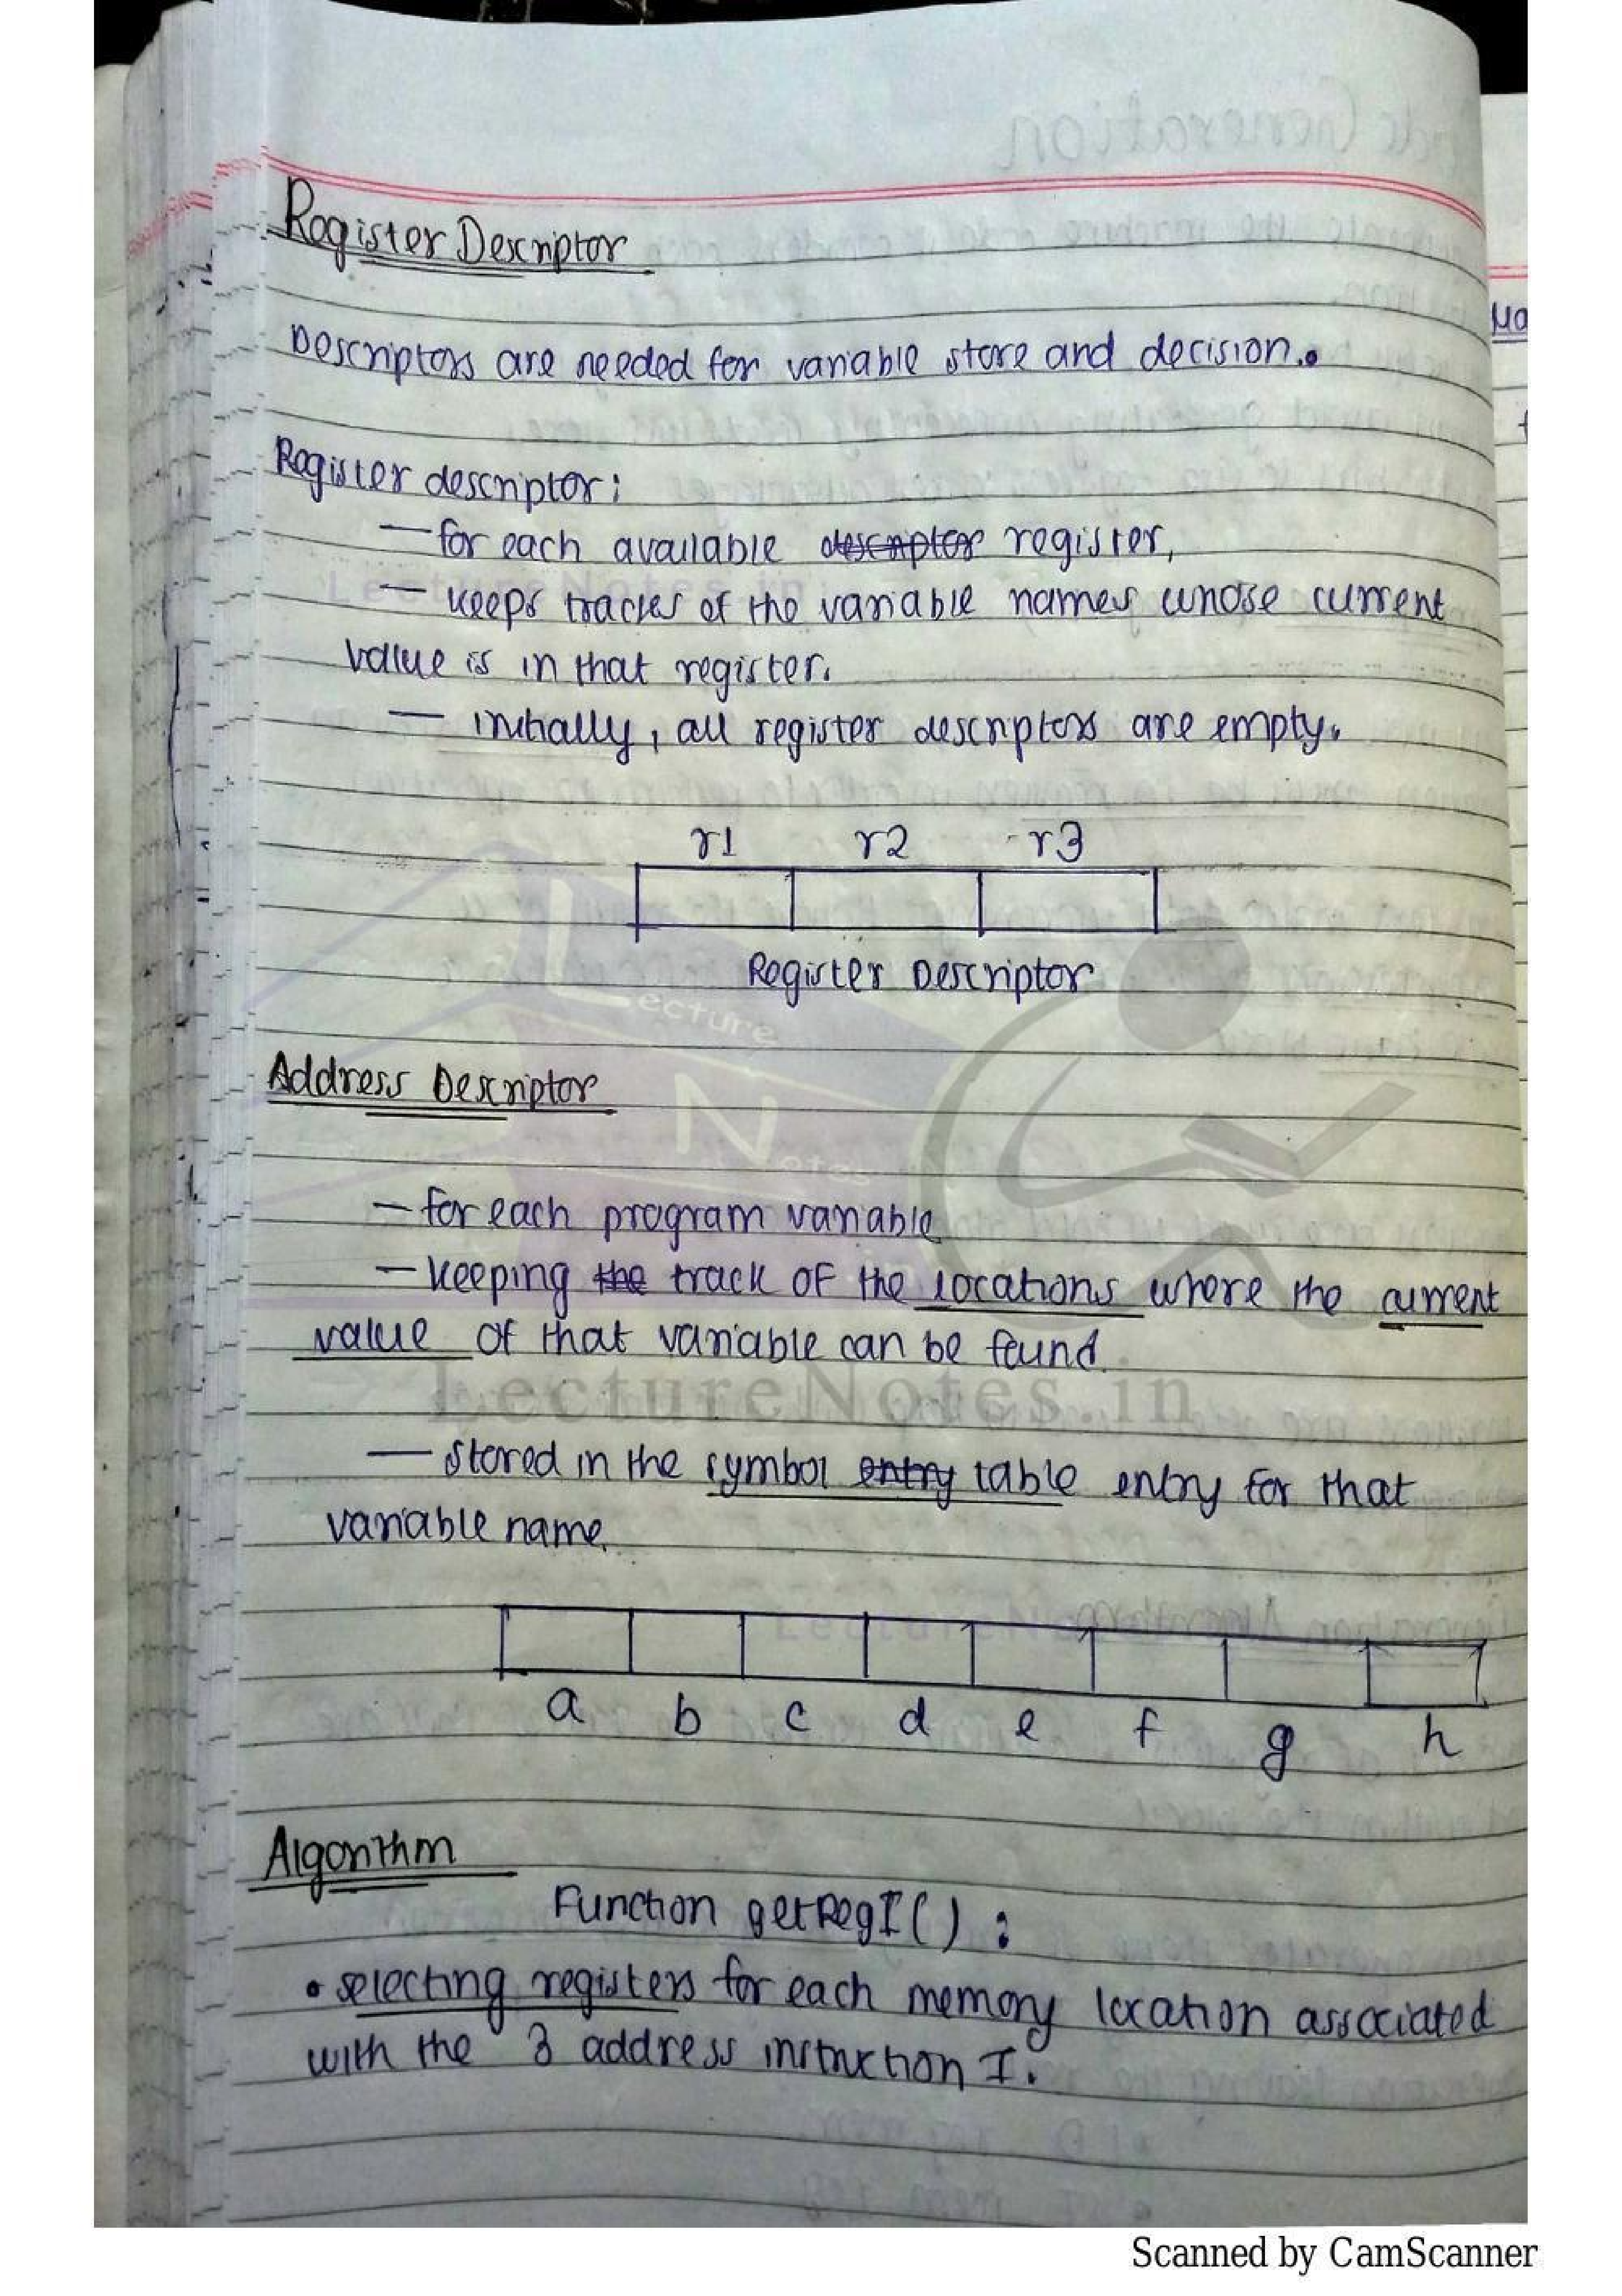 Register Descriptor
Descriptors are needed for variable store and decision.
Register descriptor:
— for each available descriptor register,
— keeps tracks of the variable names whose current
value is in that register.
— initially, all register descriptors are empty.
r1 r2 r3
Register Descriptor
Address Descriptor
— for each program variable
— keeping the track of the locations where the current
value of that variable can be found.
LectureNotes.in
— stored in the symbol entry table entry for that
variable name.
a b c d e f g h
Algorithm
Function getRegI() :
• selecting registers for each memory location associated
with the 3 address instruction I.
Scanned by CamScanner